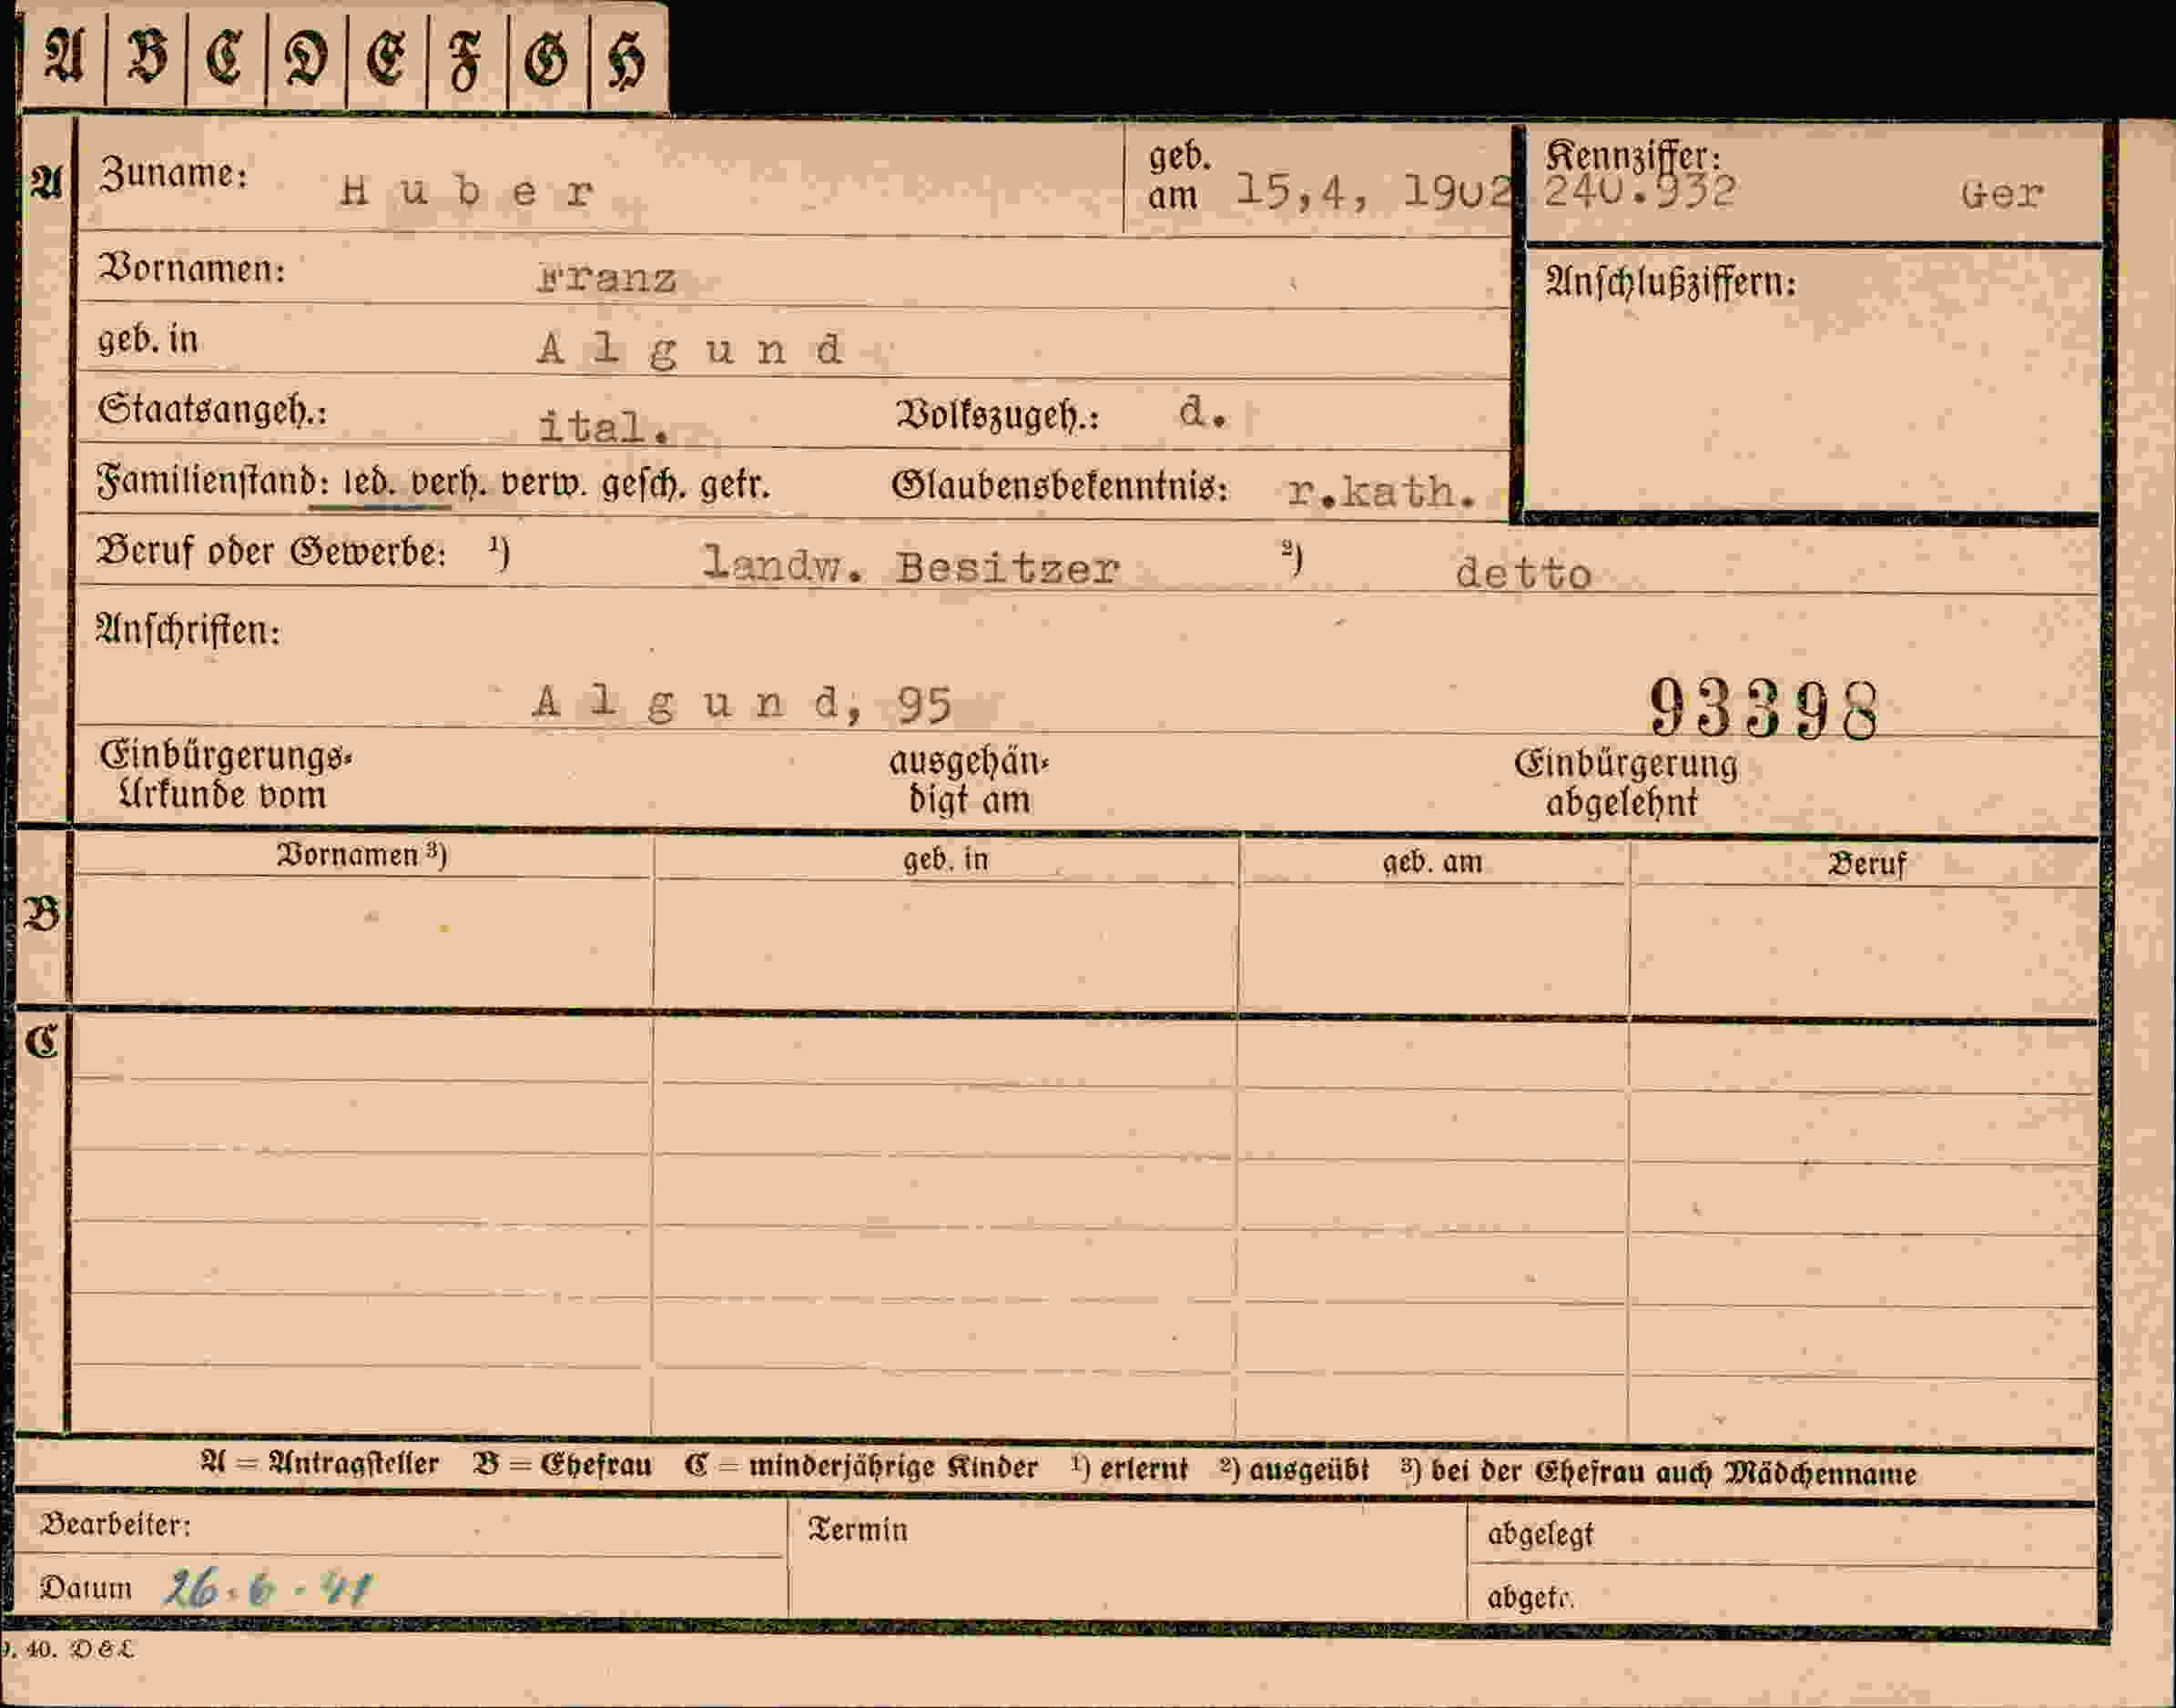 A B C D E F G H
A Zuname: Huber geb. am 15,4, 1902 Kennziffer: 240.932 Ger
Vornamen: Franz Anschlußziffern:
geb. in Algund
Staatsangeh.: ital. Volkszugeh.: d.
Familienstand: led. verh. verw. gesch. getr. Glaubensbekenntnis: r.kath.
Beruf oder Gewerbe: ¹) landw. Besitzer ²) detto
Anschriften:
Algund, 95 93398
Einbürgerungs- ausgehän- Einbürgerung
Urkunde vom digt am abgelehnt
Vornamen ³) geb. in geb. am Beruf
B
C
A = Antragsteller B = Ehefrau C = minderjährige Kinder ¹) erlernt ²) ausgeübt ³) bei der Ehefrau auch Mädchenname
Bearbeiter: Termin abgelegt
Datum 26.6.41 abgetr.
40. D&L